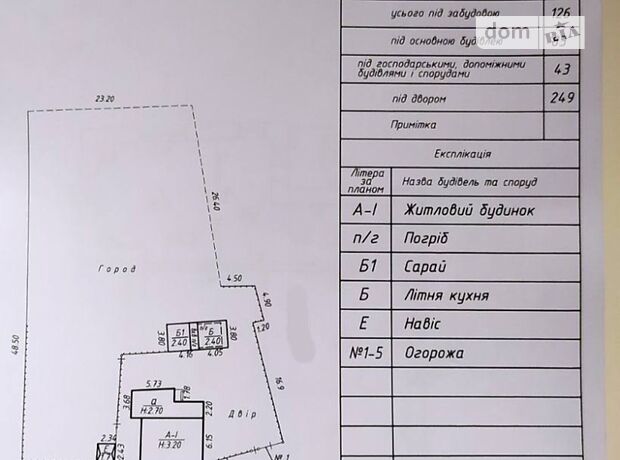 усього під забудовою 126
під основною будівлею 83
під господарськими, допоміжними
будівлями і спорудами 43
під двором 249
Примітка
Експлікація
Літера
за
планом
Назва будівель та споруд
А-І Житловий будинок
п/г Погріб
Б1 Сарай
Б Літня кухня
Е Навіс
№1-5 Огорожа
dom RIA
23.20
26.40
48.50
Город
4.50
4.90
1.20
3.80
Б1
2.40
п/г
Б
2.40
3.80
4.16
4.05
16.9
5.73
1.78
3.68
а
Н:2.70
2.20
Двір
2.34
2.43
А-І
Н:3.20
6.15
№1